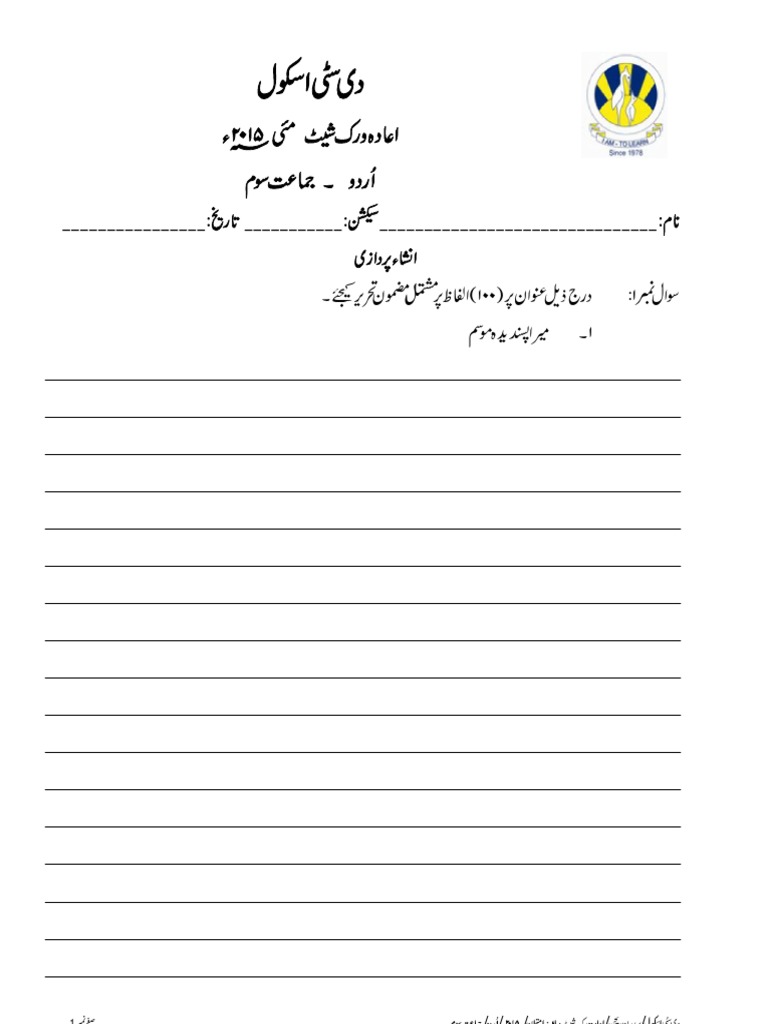 دی سٹی اسکول
اعادہ ورک شیٹ مئی ۲۰۱۵ء
اُردو ۔ جماعت سوم
نام:_______________________________سیکشن:___________ تاریخ:________________
انشاء پردازی
سوال نمبر۱: درج ذیل عنوان پر (۱۰۰) الفاظ پر مشتمل مضمون تحریر کیجئے ۔
۱۔ میرا پسندیدہ موسم
I AM - TO LEARN
Since 1978